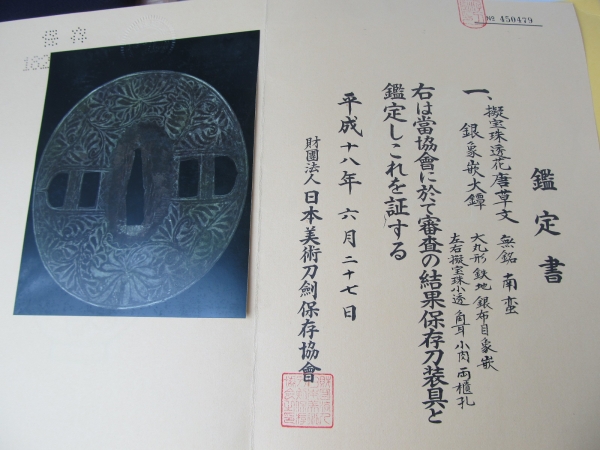 保存
№ 450479
鑑定書
一、擬宝珠透花唐草文
銀象嵌大鐔
無銘 南蛮
大丸形 鉄地 銀布目象嵌
左右擬宝珠小透 角耳 小肉 両櫃孔
右は當協會に於て審査の結果保存刀装具と
鑑定しこれを証する
平成十八年六月二十七日
財團法人日本美術刀劍保存協會